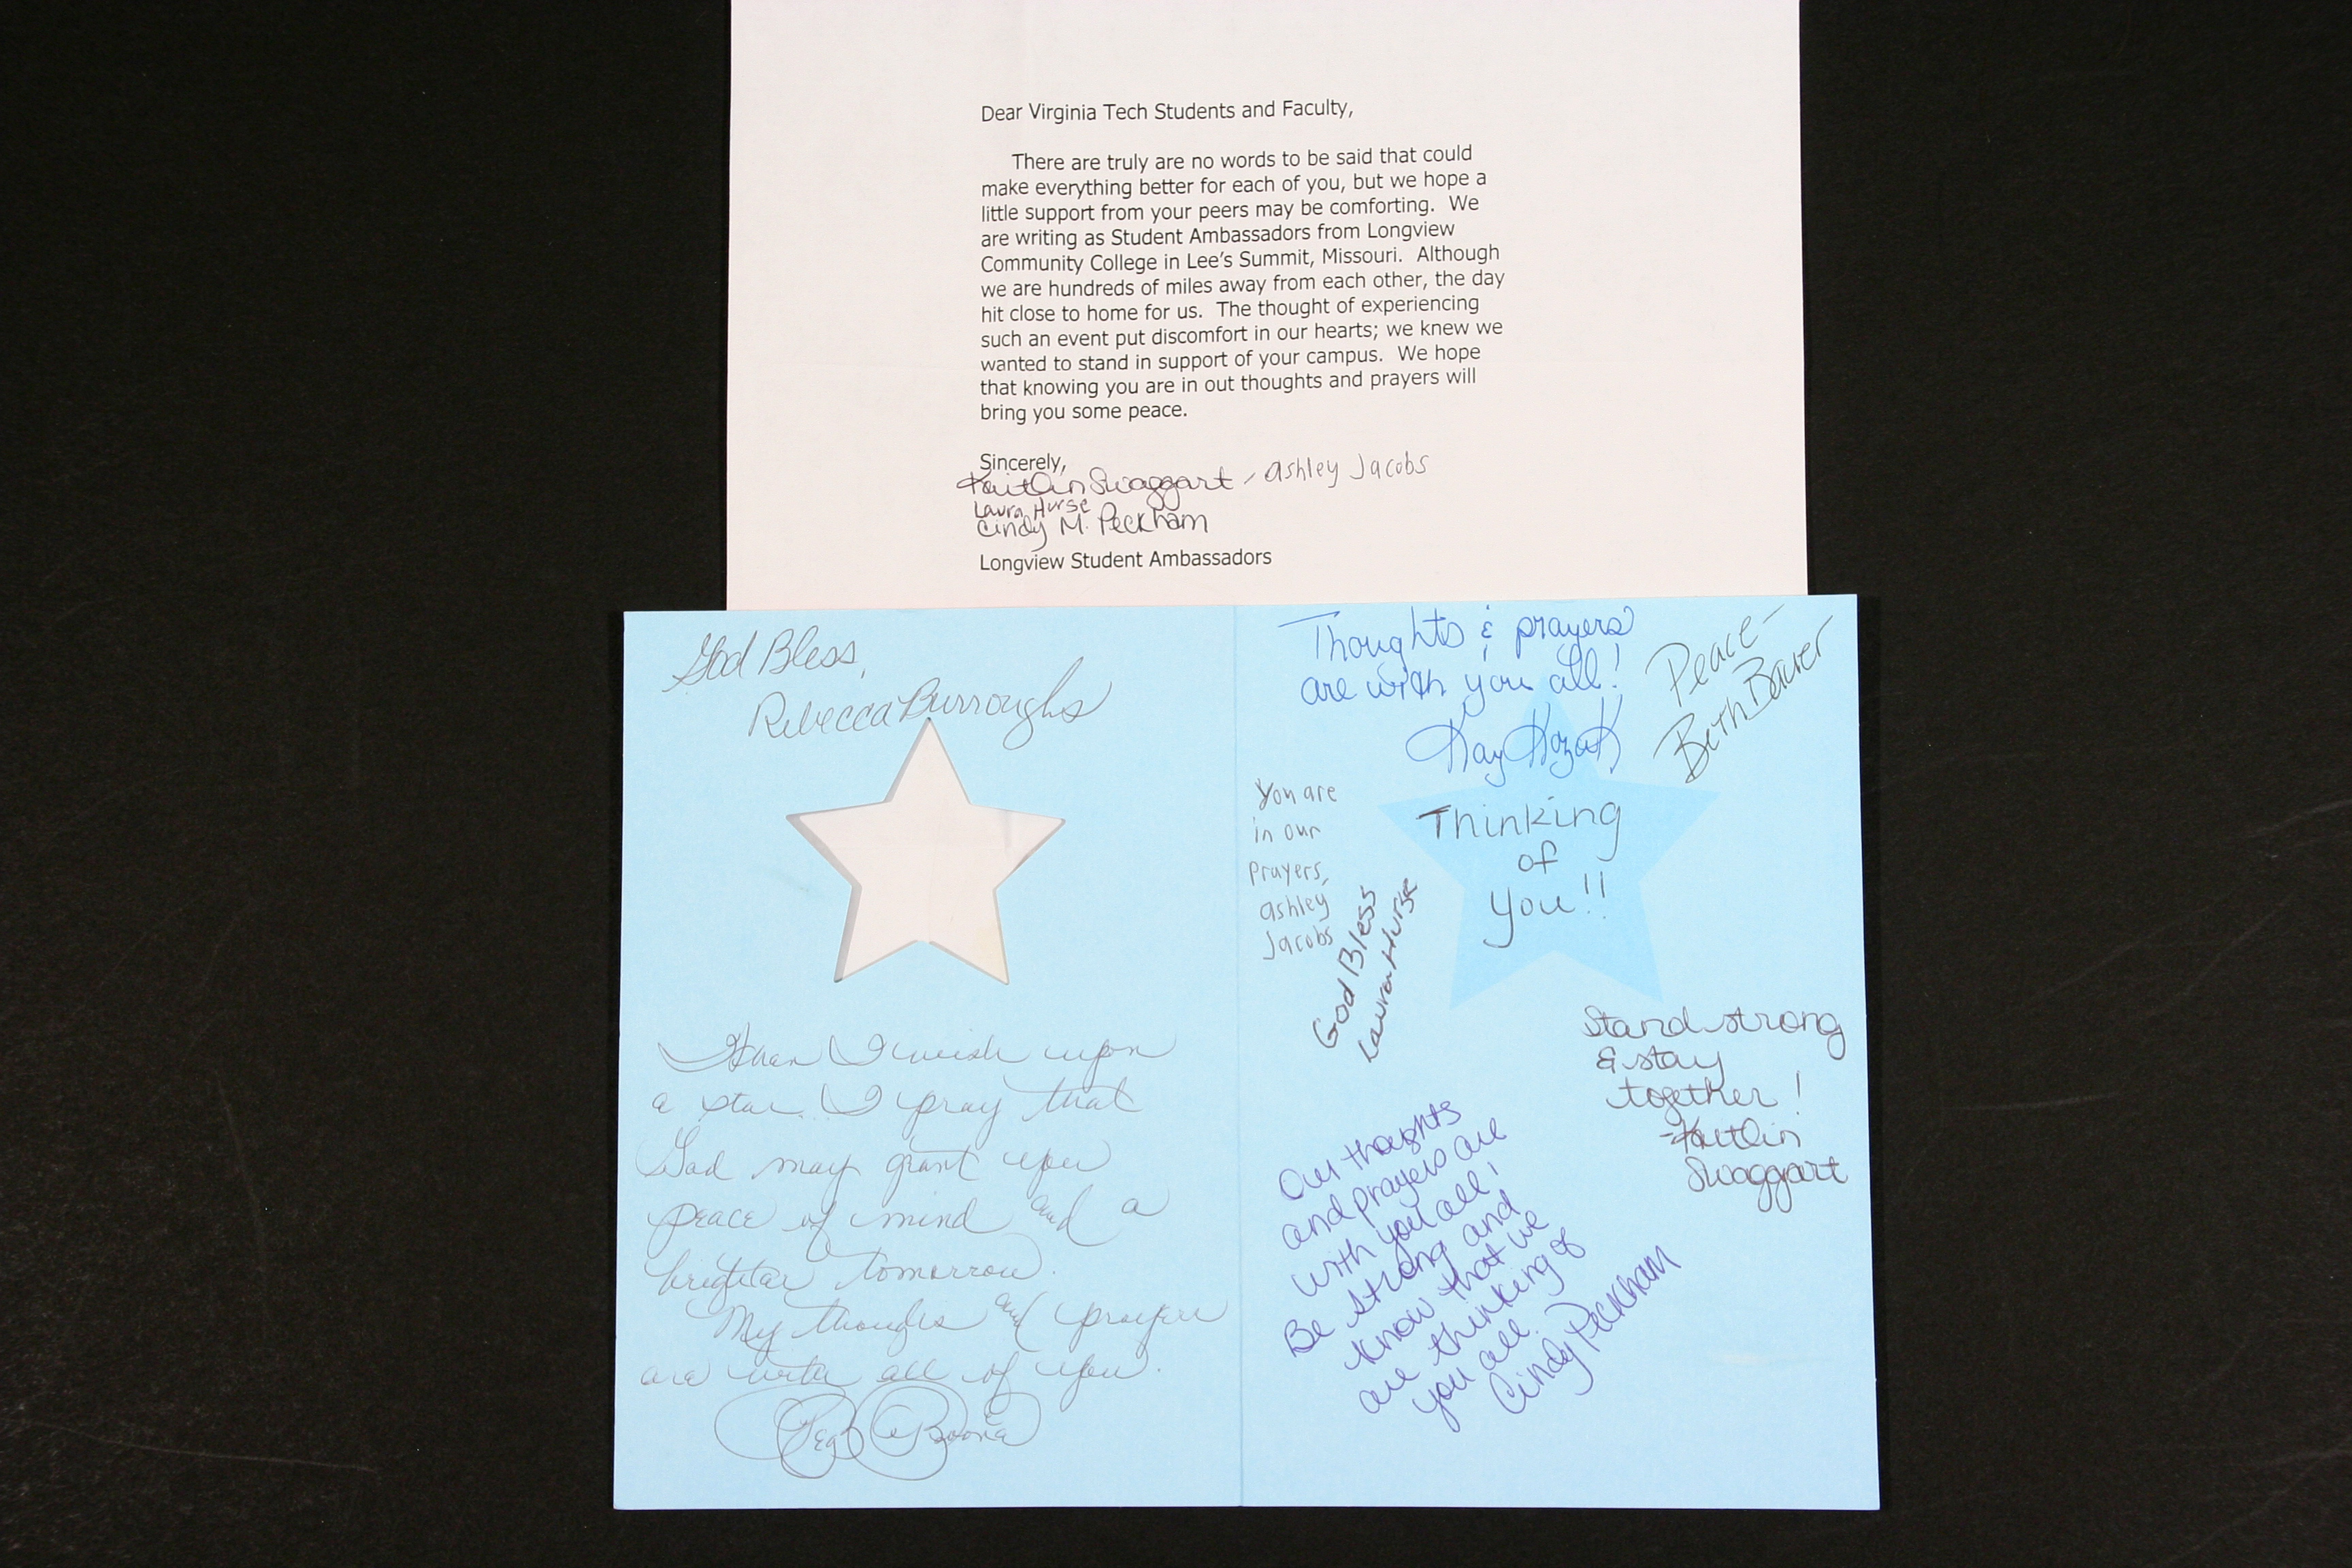 Dear Virginia Tech Students and Faculty,
There are truly are no words to be said that could
make everything better for each of you, but we hope a
little support from your peers may be comforting. We
are writing as Student Ambassadors from Longview
Community College in Lee's Summit, Missouri. Although
we are hundreds of miles away from each other, the day
hit close to home for us. The thought of experiencing
such an event put discomfort in our hearts; we knew we
wanted to stand in support of your campus. We hope
that knowing you are in out thoughts and prayers will
bring you some peace.
Sincerely,
Kaitlin Swaggart - Ashley Jacobs
Laura Hurse
Cindy M. Peckham
Longview Student Ambassadors
God Bless,
Rebecca Burroughs
When I wish upon
a star I pray that
God may grant you
peace of mind and a
brighter tomorrow.
My thoughts and prayers
are with all of you.
Peg Boone
Thoughts & prayers
are with you all!
Kay Kozak
Peace -
Beth Bauer
Thinking
of
you!!
You are
in our
prayers,
Ashley
Jacobs
God Bless
Laura Hurse
Stand strong
& stay
together!
- Kaitlin
Swaggart
Our thoughts
and prayers are
with you all!
Be strong and
know that we
are thinking of
you all.
Cindy Peckham